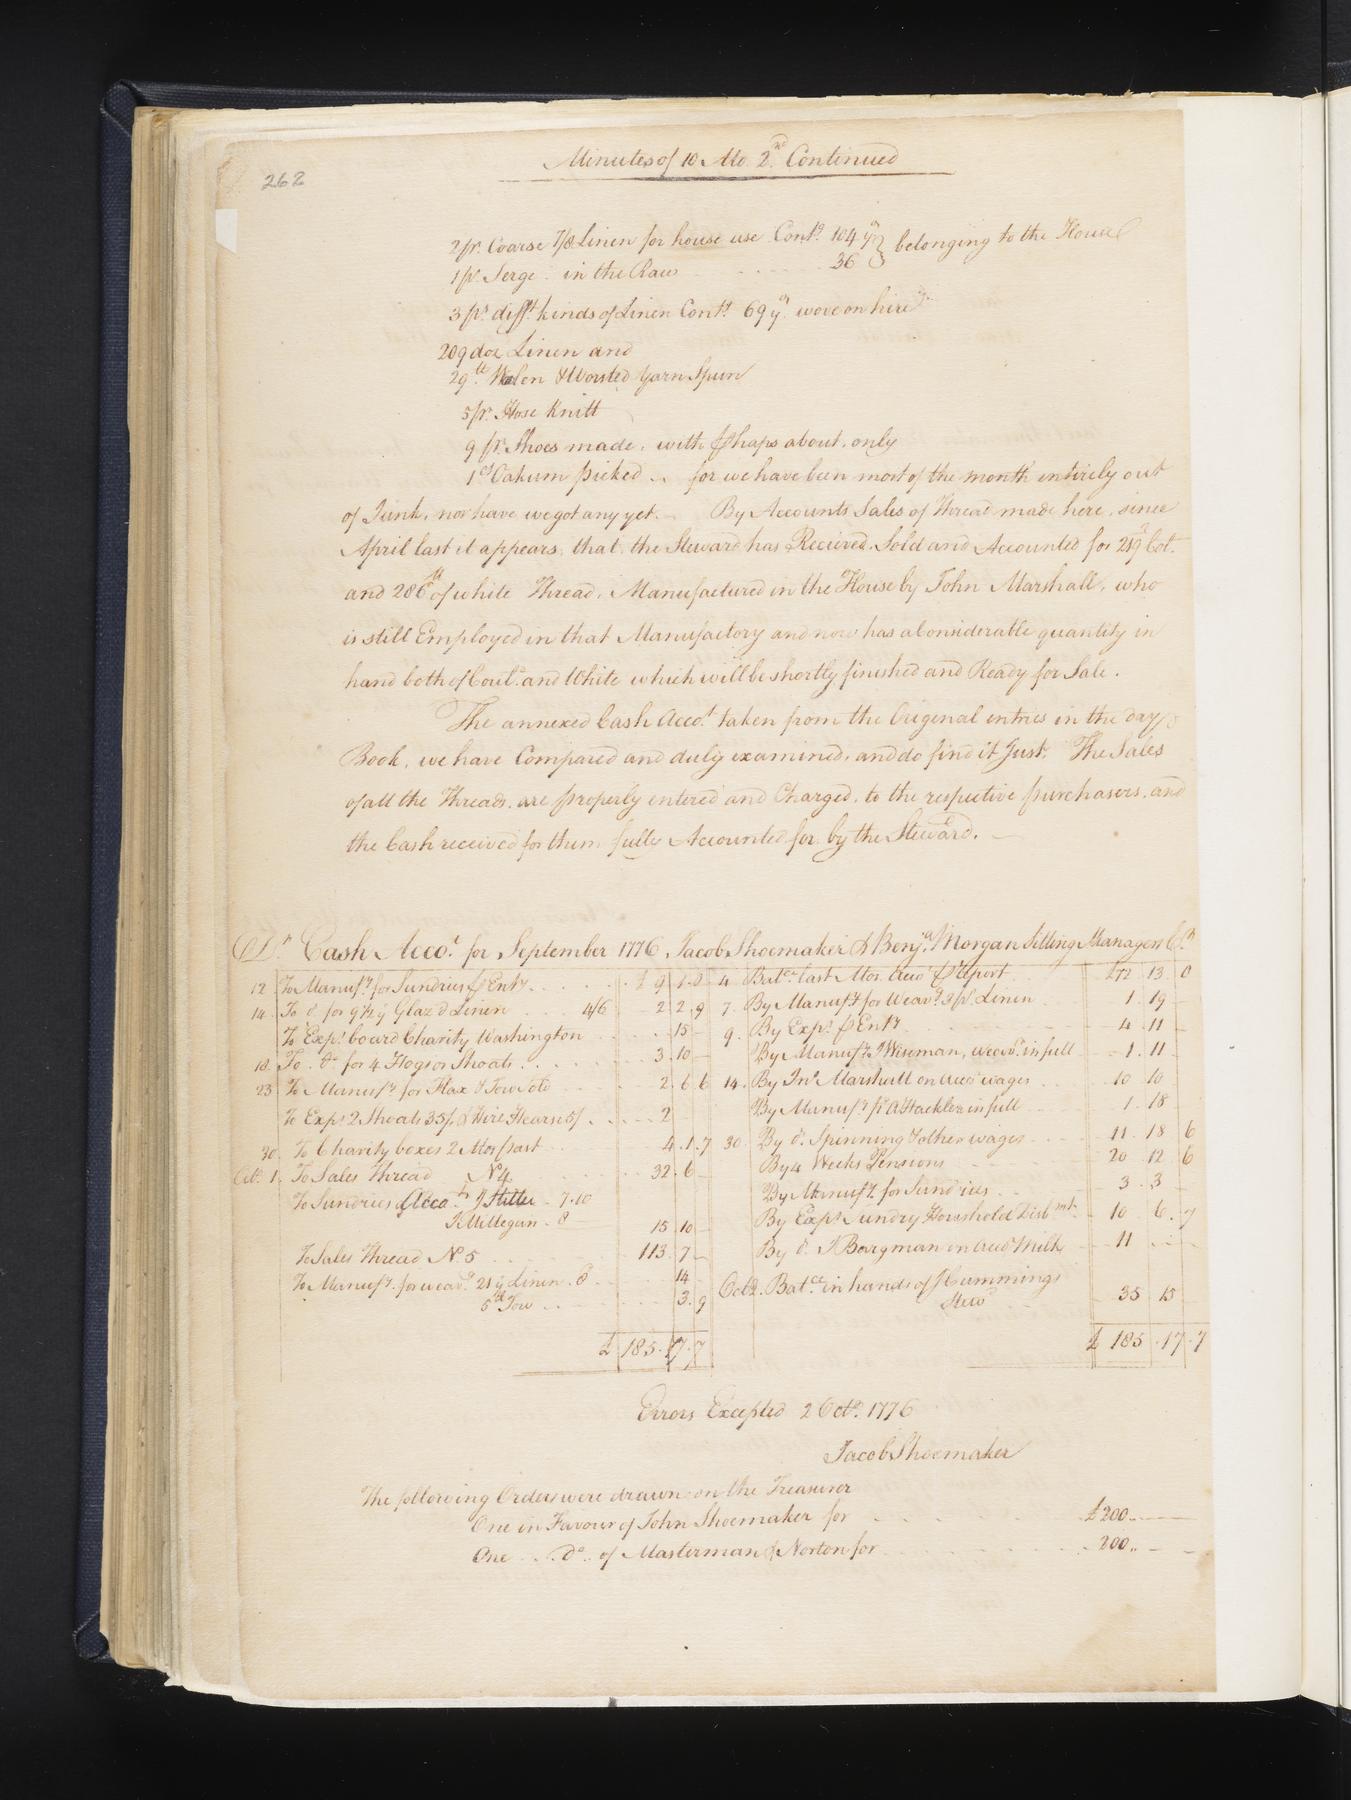 262
Minutes of 10 Mo. 2nd. Continued
2 ps. Coarse 7/8 Linen for house use Contg. 104 yds } belonging to the House
1 ps. Serge in the Raw 36
3 ps. difft. kinds of Linen Contg. 69 yds. wove on hire
209 doz Linen and
29 lb. Woolen & Worsted Yarn Spun
5 pr. Hose Knitt
9 pr. Shoes made, with perhaps about, only
1 Ct. Oakum picked for we have been most of the month entirely out
of Junk, nor have we got any yet. By Accounts Sales of Thread made here, since
April last it appears, that, the Steward has Recieved, Sold and Accounted for Cold.
and 286 lb of white Thread, Manufactured in the House by John Marshall, who
is still Employed in that Manufactory and now has a Considerable quantity in
hand both of Could. and White which will be shortly finished and Ready for Sale.
The annexed Cash Accot. taken from the Original entries in the day
Book, we have Compared and duly examined, and do find it Just. The Sales
of all the Threads, are properly entered and Charged, to the respective purchasers, and
the Cash received for them fully Accounted for by the Steward.
Dr. Cash Accot. for September 1776, Jacob Shoemaker & Benja. Morgan Sitting Managers Cr.
12 To Manufy. for Sundries p Entry £9.1.0 4 Balce. last Mos. Acco p Report £72 13 0
14 To do. for 9½ yd Glaz'd Linen 4/6 2 2.9 7. By Manufy for Weavg. 3 ps. Linen 1. 19 -
To Exps. board Charity Washington 15 - 9. By Exps. p Entry 4. 11 -
18. To do. for 4 Hogs or Shoats 3. 10 - By Manufy. Wiseman, weavr. in full 1. 11 -
23 To Manufy. for Flax & Tow Sold 2. 6 6 14. By Jno. Marshall on Acco wages 10 10
To Exps. 2 Shoats 35/. & Hire Hearse 5/. 2 By Manufy. pd. A Hackler in full 1. 18
30. To Charity boxes 2 Mos. past 4.1.7 30. By do. Spinning & other wages 11. 18 6
Octr. 1. To Sales Thread No. 4 32. 6 - By 4 Weeks Pensions 20 12 6
To Sundries Acco. 7.10 By Manufy. for Sundries 3. 3 -
J. Millegan 8 15 10 - By Exps. Sundry Household Disbmts. 10 6. 7
To Sales Thread No. 5 113. 7 - By do. J Bargman on Acco Milk 11
To Manufy. for weavg. 21 yd Linen 8d 14 - Oct 2. Balce. in hands of J Cummings
5 lb Tow 3. 9 Stewd. 35 15
£ 185.17.7 £ 185.17.7
Errors Excepted 2 Octr. 1776
Jacob Shoemaker
The following Orders were drawn on the Treasurer
One in Favour of John Shoemaker for £200 ..
One Do. of Masterman & Norton for 200 ..